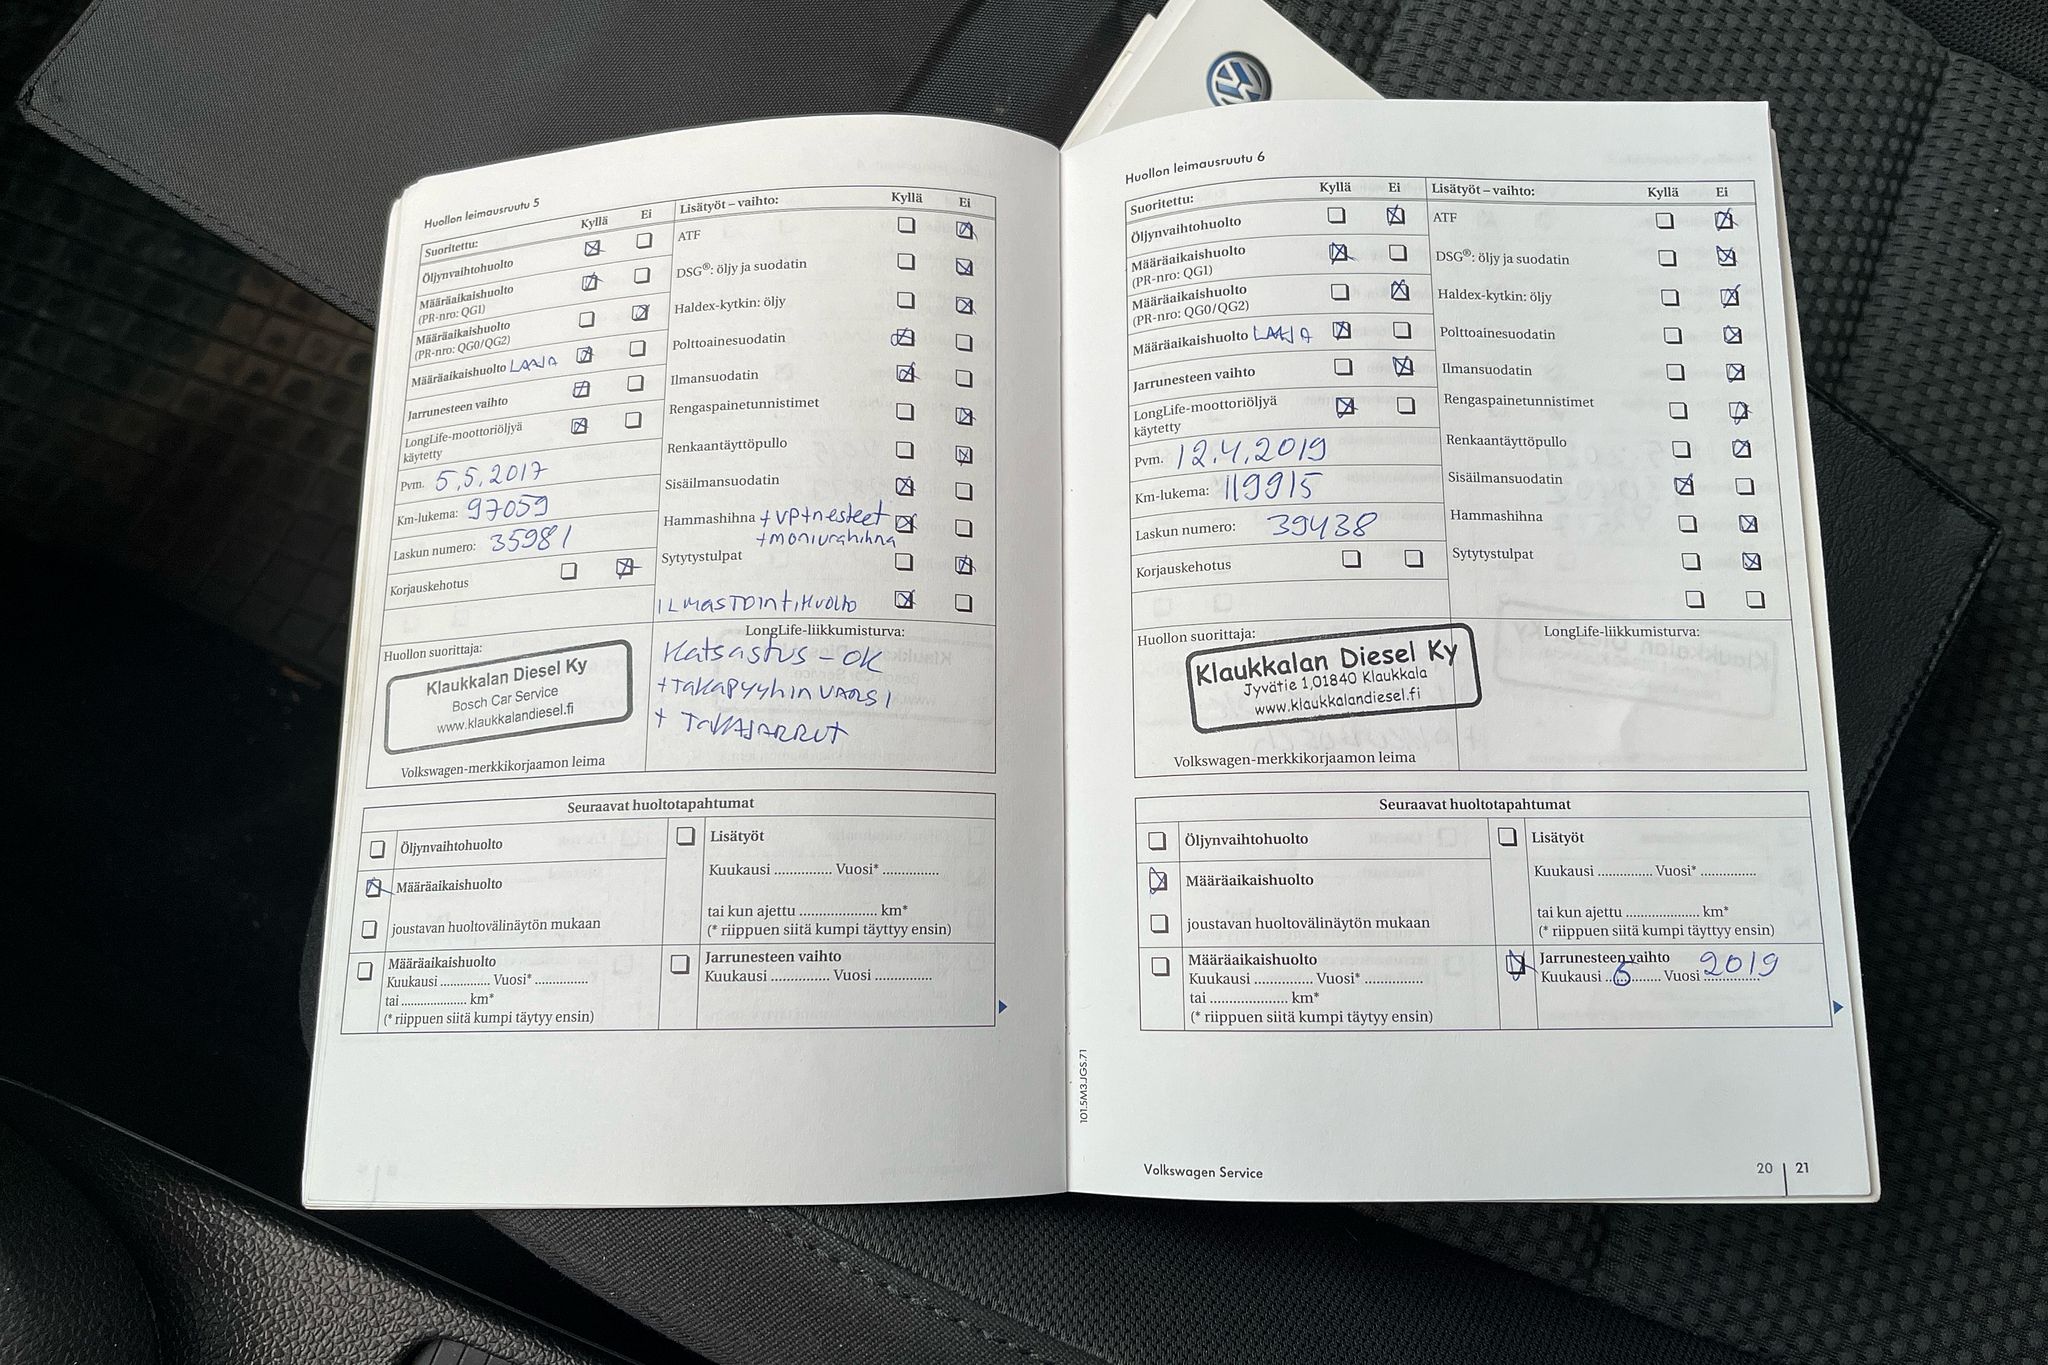 Huollon leimausruutu 5
Suoritettu: Kyllä Ei
Öljynvaihtohuolto
Määräaikaishuolto
(PR-nro: QG1)
Määräaikaishuolto
(PR-nro: QG0/QG2)
Määräaikaishuolto LAAJA
Jarrunesteen vaihto
LongLife-moottoriöljyä
käytetty
Pvm. 5.5.2017
Km-lukema: 97059
Laskun numero: 35981
Korjauskehotus
Lisätyöt – vaihto: Kyllä Ei
ATF
DSG®: öljy ja suodatin
Haldex-kytkin: öljy
Polttoainesuodatin
Ilmansuodatin
Rengaspainetunnistimet
Renkaantäyttöpullo
Sisäilmansuodatin
Hammashihna + VP + nesteet
+ moniurahihna
Sytytystulpat
ILMASTOINTIHUOLTO
Huollon suorittaja:
Klaukkalan Diesel Ky
Bosch Car Service
www.klaukkalandiesel.fi
Volkswagen-merkkikorjaamon leima
LongLife-liikkumisturva:
Katsastus - OK
+ TAKAPYYHIN VARSI
+ TAKAJARRUT
Seuraavat huoltotapahtumat
Öljynvaihtohuolto
Määräaikaishuolto
joustavan huoltovälinäytön mukaan
Määräaikaishuolto
Kuukausi ............... Vuosi* ...............
tai ................... km*
(* riippuen siitä kumpi täytyy ensin)
Lisätyöt
Kuukausi ............... Vuosi* ...............
tai kun ajettu ..................... km*
(* riippuen siitä kumpi täyttyy ensin)
Jarrunesteen vaihto
Kuukausi ............... Vuosi ...............
Huollon leimausruutu 6
Suoritettu: Kyllä Ei
Öljynvaihtohuolto
Määräaikaishuolto
(PR-nro: QG1)
Määräaikaishuolto
(PR-nro: QG0/QG2)
Määräaikaishuolto LAAJA
Jarrunesteen vaihto
LongLife-moottoriöljyä
käytetty
Pvm. 12.4.2019
Km-lukema: 119915
Laskun numero: 39438
Korjauskehotus
Lisätyöt – vaihto: Kyllä Ei
ATF
DSG®: öljy ja suodatin
Haldex-kytkin: öljy
Polttoainesuodatin
Ilmansuodatin
Rengaspainetunnistimet
Renkaantäyttöpullo
Sisäilmansuodatin
Hammashihna
Sytytystulpat
Huollon suorittaja:
Klaukkalan Diesel Ky
Jyvätie 1, 01840 Klaukkala
www.klaukkalandiesel.fi
Volkswagen-merkkikorjaamon leima
LongLife-liikkumisturva:
Seuraavat huoltotapahtumat
Öljynvaihtohuolto
Määräaikaishuolto
joustavan huoltovälinäytön mukaan
Määräaikaishuolto
Kuukausi ............... Vuosi* ...............
tai ..................... km*
(* riippuen siitä kumpi täytyy ensin)
Lisätyöt
Kuukausi ............... Vuosi* ...............
tai kun ajettu ................... km*
(* riippuen siitä kumpi täyttyy ensin)
Jarrunesteen vaihto
Kuukausi ..6......... Vuosi 2019
101.5M3.JGS.71
Volkswagen Service
20 | 21